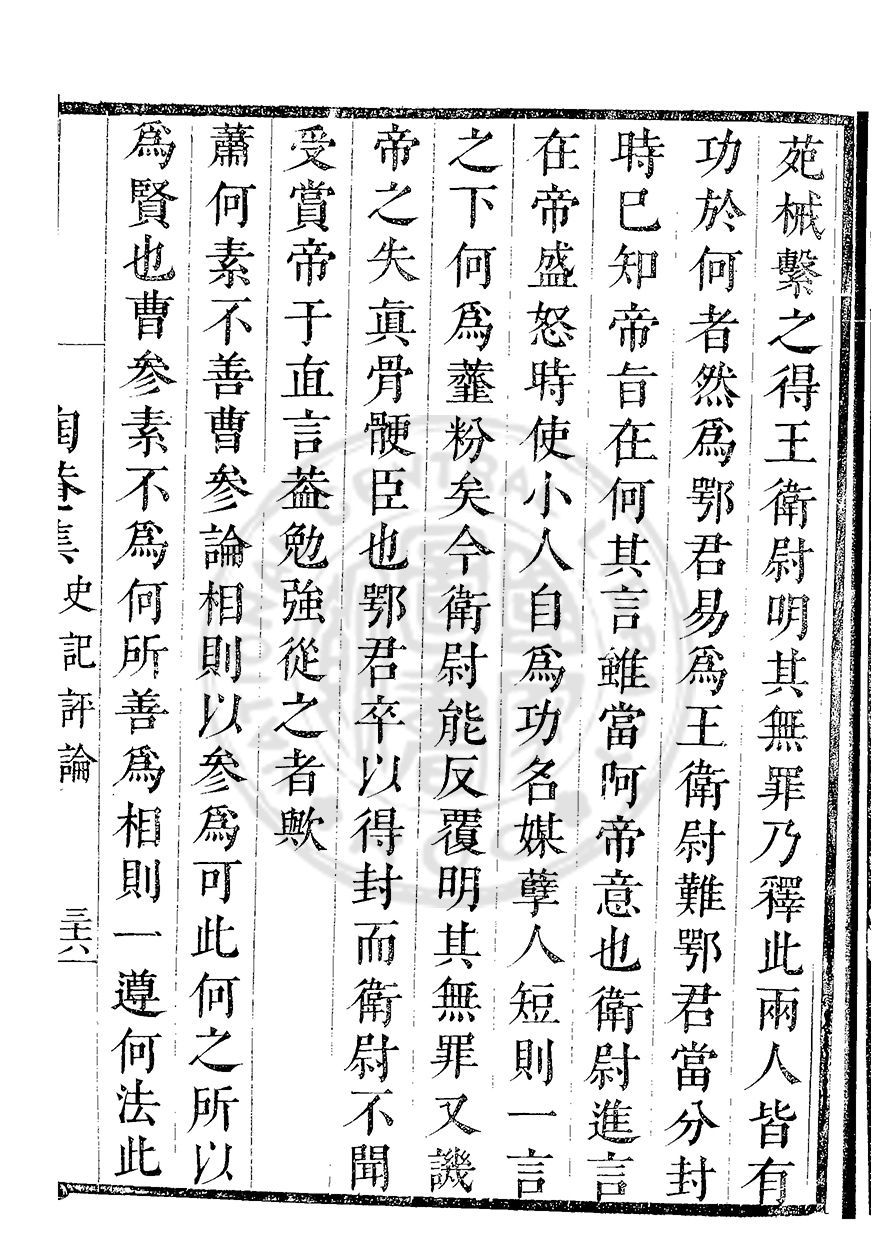 苑械繫之得王衛尉明其無罪乃釋此兩人皆有
功於何者然爲鄂君易爲王衛尉難鄂君當分封
時已知帝旨在何其言雖當阿帝意也衛尉進言
在帝盛怒時使小人自爲功名媒孽人短則一言
之下何爲虀粉矣今衛尉能反覆明其無罪又譏
帝之失眞骨骾臣也鄂君卒以得封而衛尉不聞
受賞帝于直言葢勉強從之者歟
蕭何素不善曹參論相則以參爲可此何之所以
爲賢也曹參素不爲何所善爲相則一遵何法此
陶菴集 史記評論 三十六